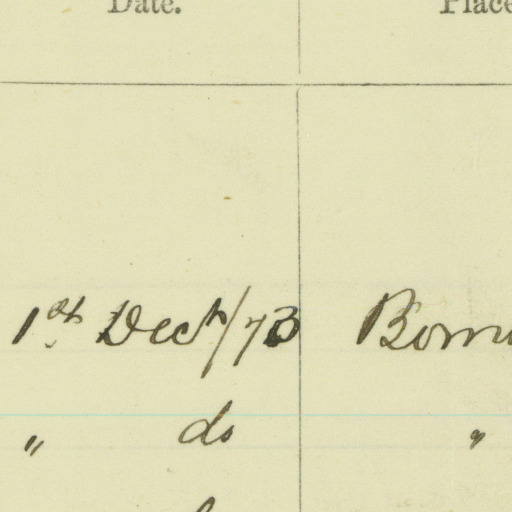 Date. Place
1st Decr/73
" do "